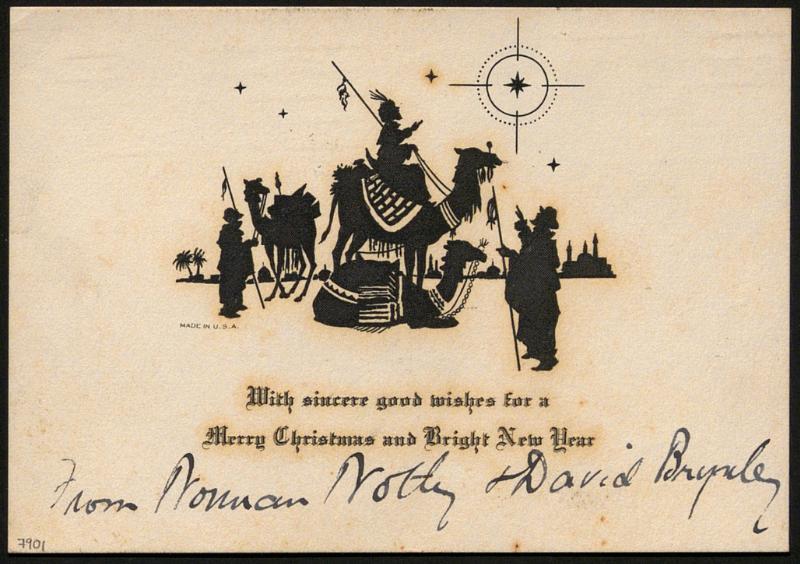 MADE IN U.S.A.
With sincere good wishes for a
Merry Christmas and Bright New Year
From Norman Notley & David Brynley
7901